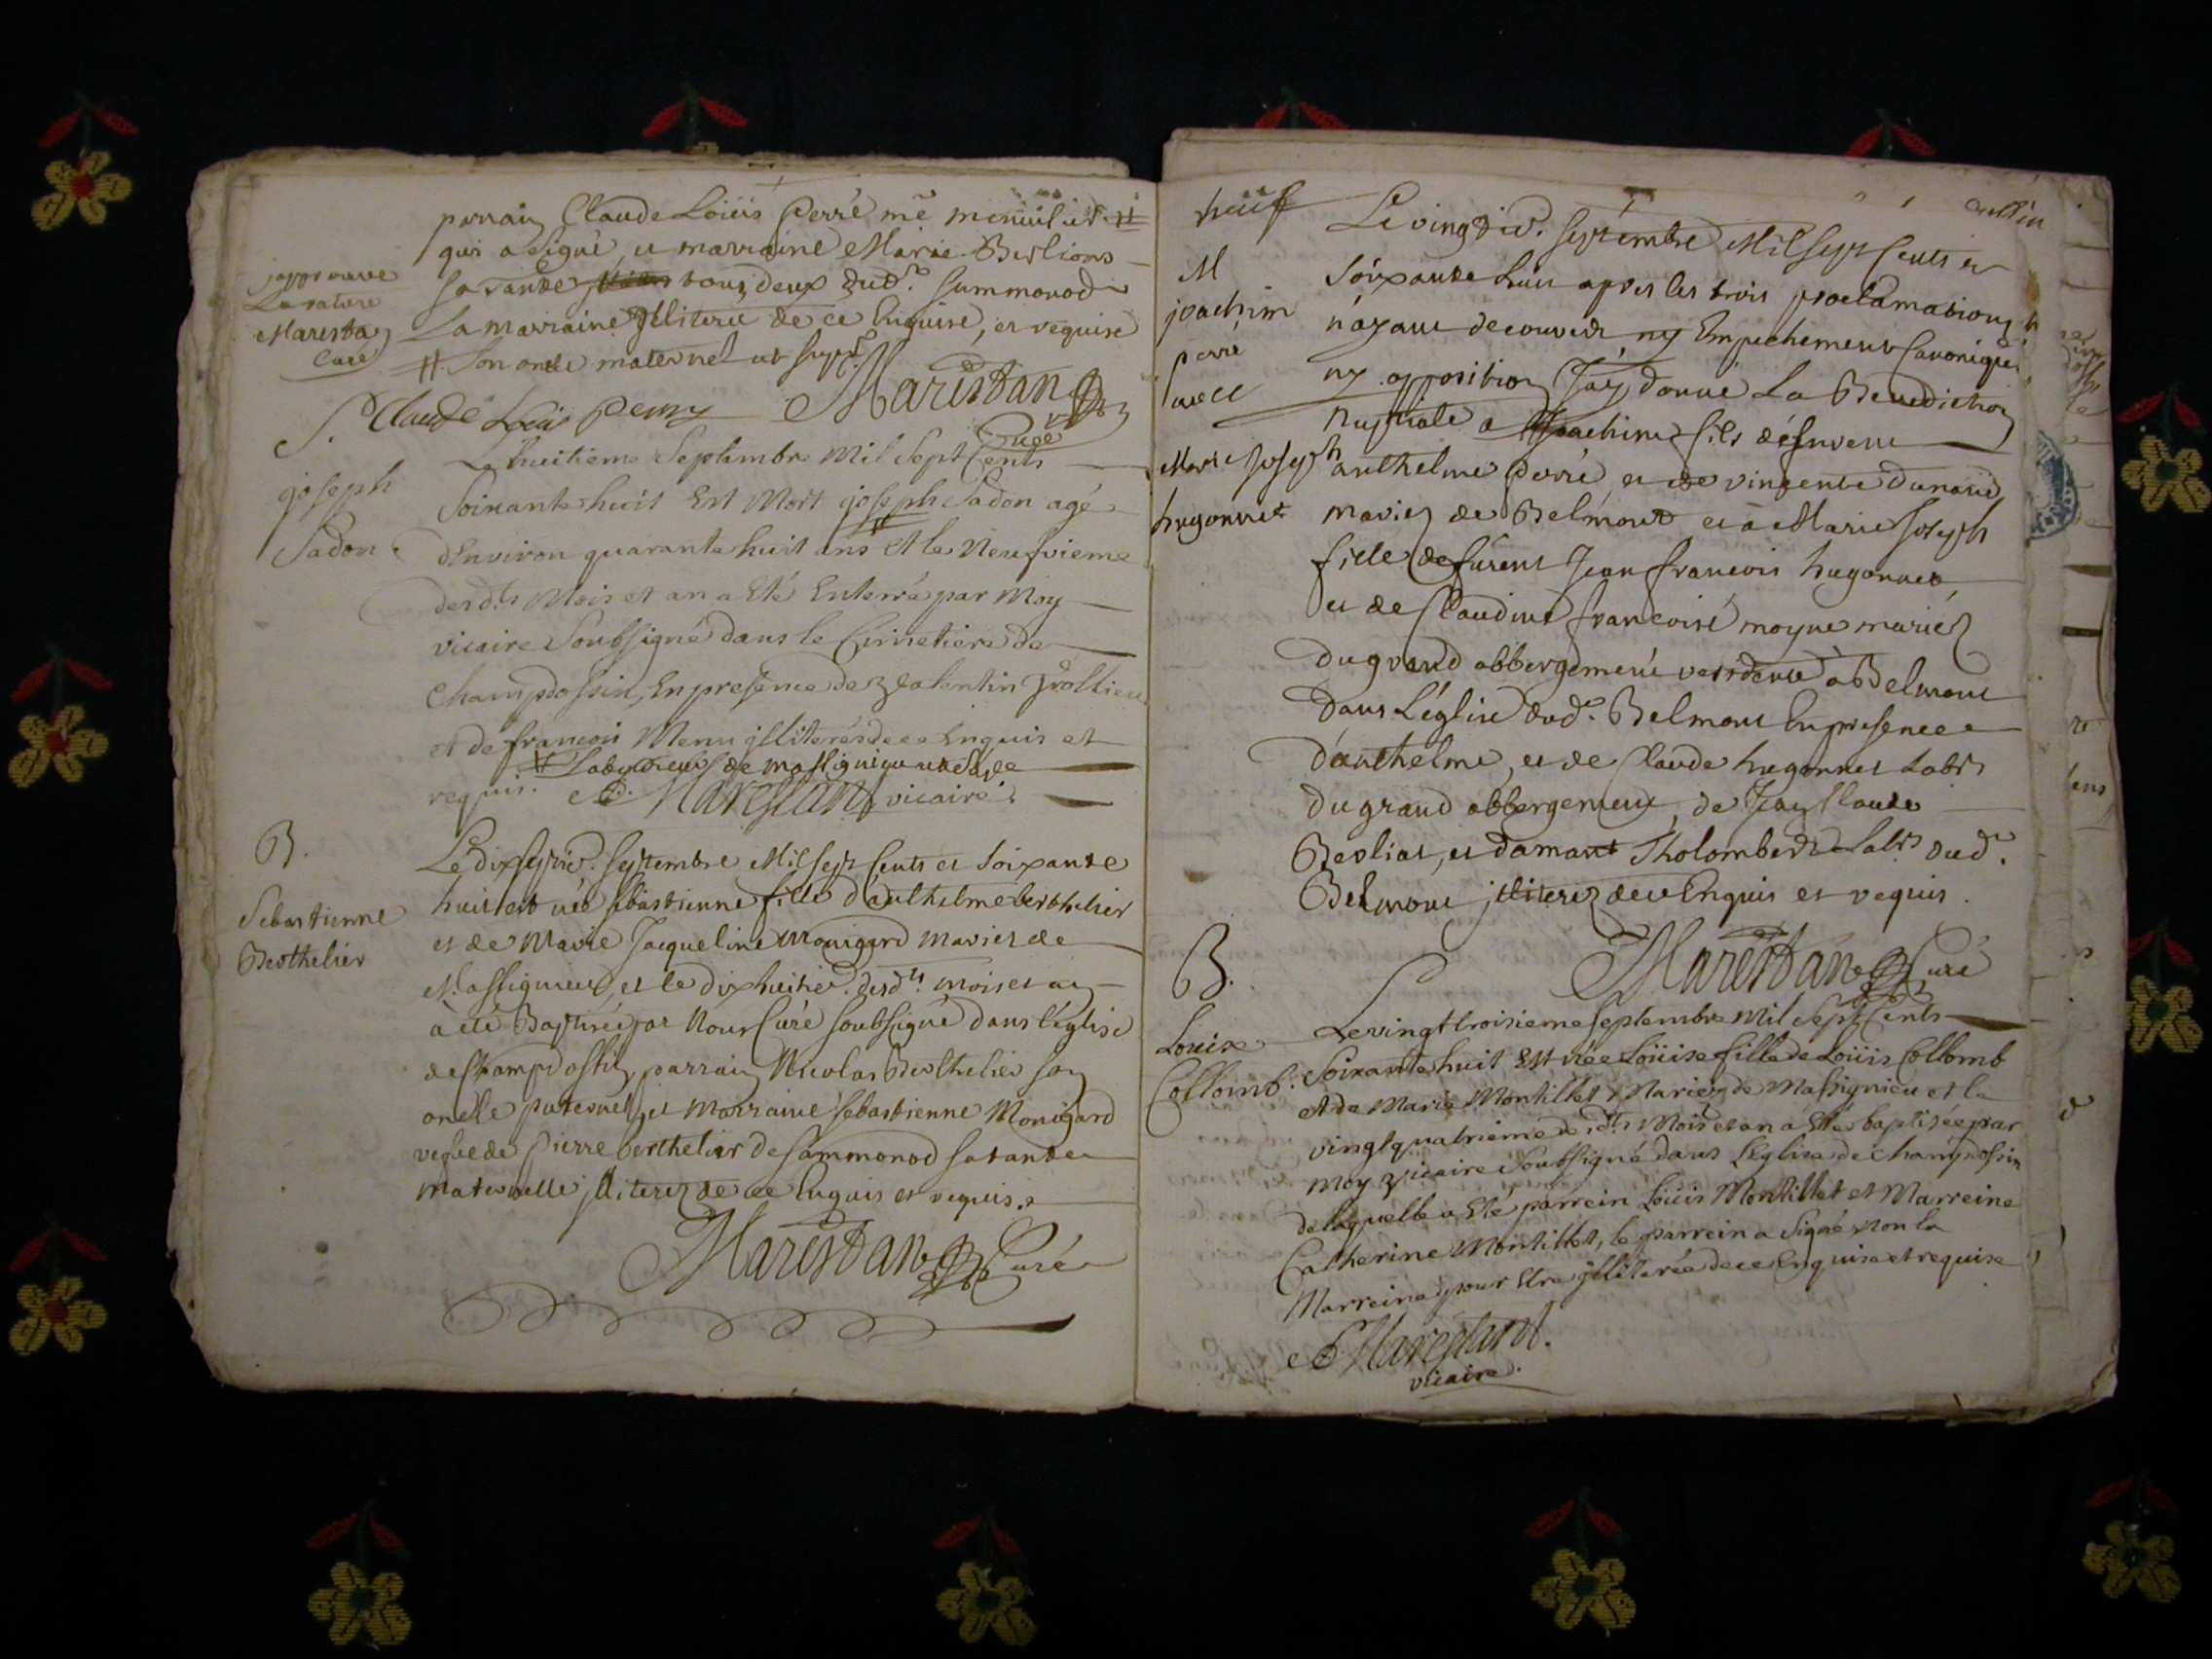 parrain Claude Loüis Perré me menuisier #
qui a signé, et marraine Marie Berlions
sa tante tous deux dud. Sammonod
La marraine jlliterée de ce Enquise, et requise
# Son oncle maternel
japprouve
La rature
Marestan
Curé
Claude Loüis Perry Marestan Curé
joseph
Sadon
Le huitieme Septembre Mil Sept Cents
Soixante huit Est Mort joseph Sadon agé
d'Environ quarante huit ans Et le Neufvieme
desd.ts Mois et an a Eté Enterré par Moy
vicaire Soubsigné dans le Cimetiere de
Champdossin, En presence de valentin
et de francois Menu jlliterés de ce Enquis et
requis. Marestan vicaire
# Laboureur de Massignieu
B.
Sebastienne
Berthelier
Le dix septie. septembre Mil sept Cents et soixante
huit est née sebastienne fille d'anthelme berthelier
et de Marie Jacqueline Monigard mariez de
Massignieu, et le dix huitie. desd.ts mois et an
a eté Baptisée par Nous Curé soubsigné dans l'église
de Champdossin, parrain Nicolas Berthelier son
oncle paternel, et Marraine sebastienne Monigard
vefve de Pierre berthelier de sammonod sa tante
maternelle jlliterez de ce Enquis et requis.
Marestan Curé
neuf
M
joachim
perré
avec
Marie Joseph
hugonnet
Le vingtie. septembre Mil sept Cents et
soixante huit apres les trois proclamations
n'ayant decouvert ny Empechement Canonique
ny opposition J'ay donné La Benediction
Nuptiale a Joachim fils de feu
anthelme Perré et de vincente
mariez de Belmont et a Marie Joseph
fille de Jean francois hugonnet
et de Claudine francoise moyne mariez
du grand abbergement residente a Belmont
dans L'église dud. Belmont En presence
d'anthelme, et de Claude hugonnet Labrs
du grand abbergement, de Jean Claude
Berliat, et damant Tholombert Labrs dud.
Belmont jlliterez de ce Enquis et requis.
Marestan Curé
B.
Louise
Collomb.
Le vingt troisieme septembre Mil Sept Cents
Soixante huit Est née Loüise fille de Loüis Collomb
et de Marie Montillet Mariez de Massignieu et le
vingt quatrieme desd.ts Mois et an a Eté baptisée par
Moy vicaire Soubsigné dans L'Eglise de Champdossin
de laquelle a Eté parrein Loüis Montillet et Marreine
Catherine Montillet, le parrein a Signé Non la
Marreine pour Etre jlliterée de ce Enquise et requise
Marestan.
vicaire.